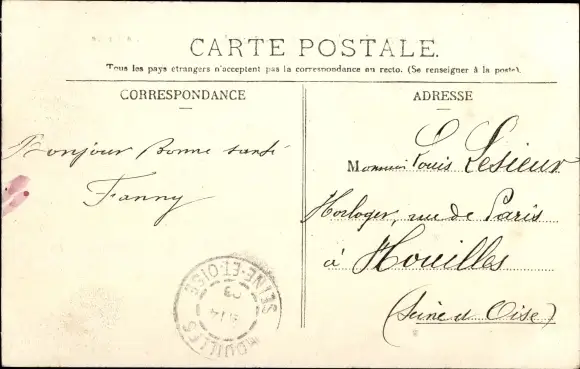 CARTE POSTALE.
Tous les pays étrangers n'acceptent pas la correspondance au recto. (Se renseigner à la poste).
CORRESPONDANCE
Bonjour Bonne santé
Fanny
ADRESSE
Monsieur Louis Lesieur
Horloger, rue de Paris
à Houilles
(Seine et Oise)
HOUILLES
SEINE-ET-OISE
03